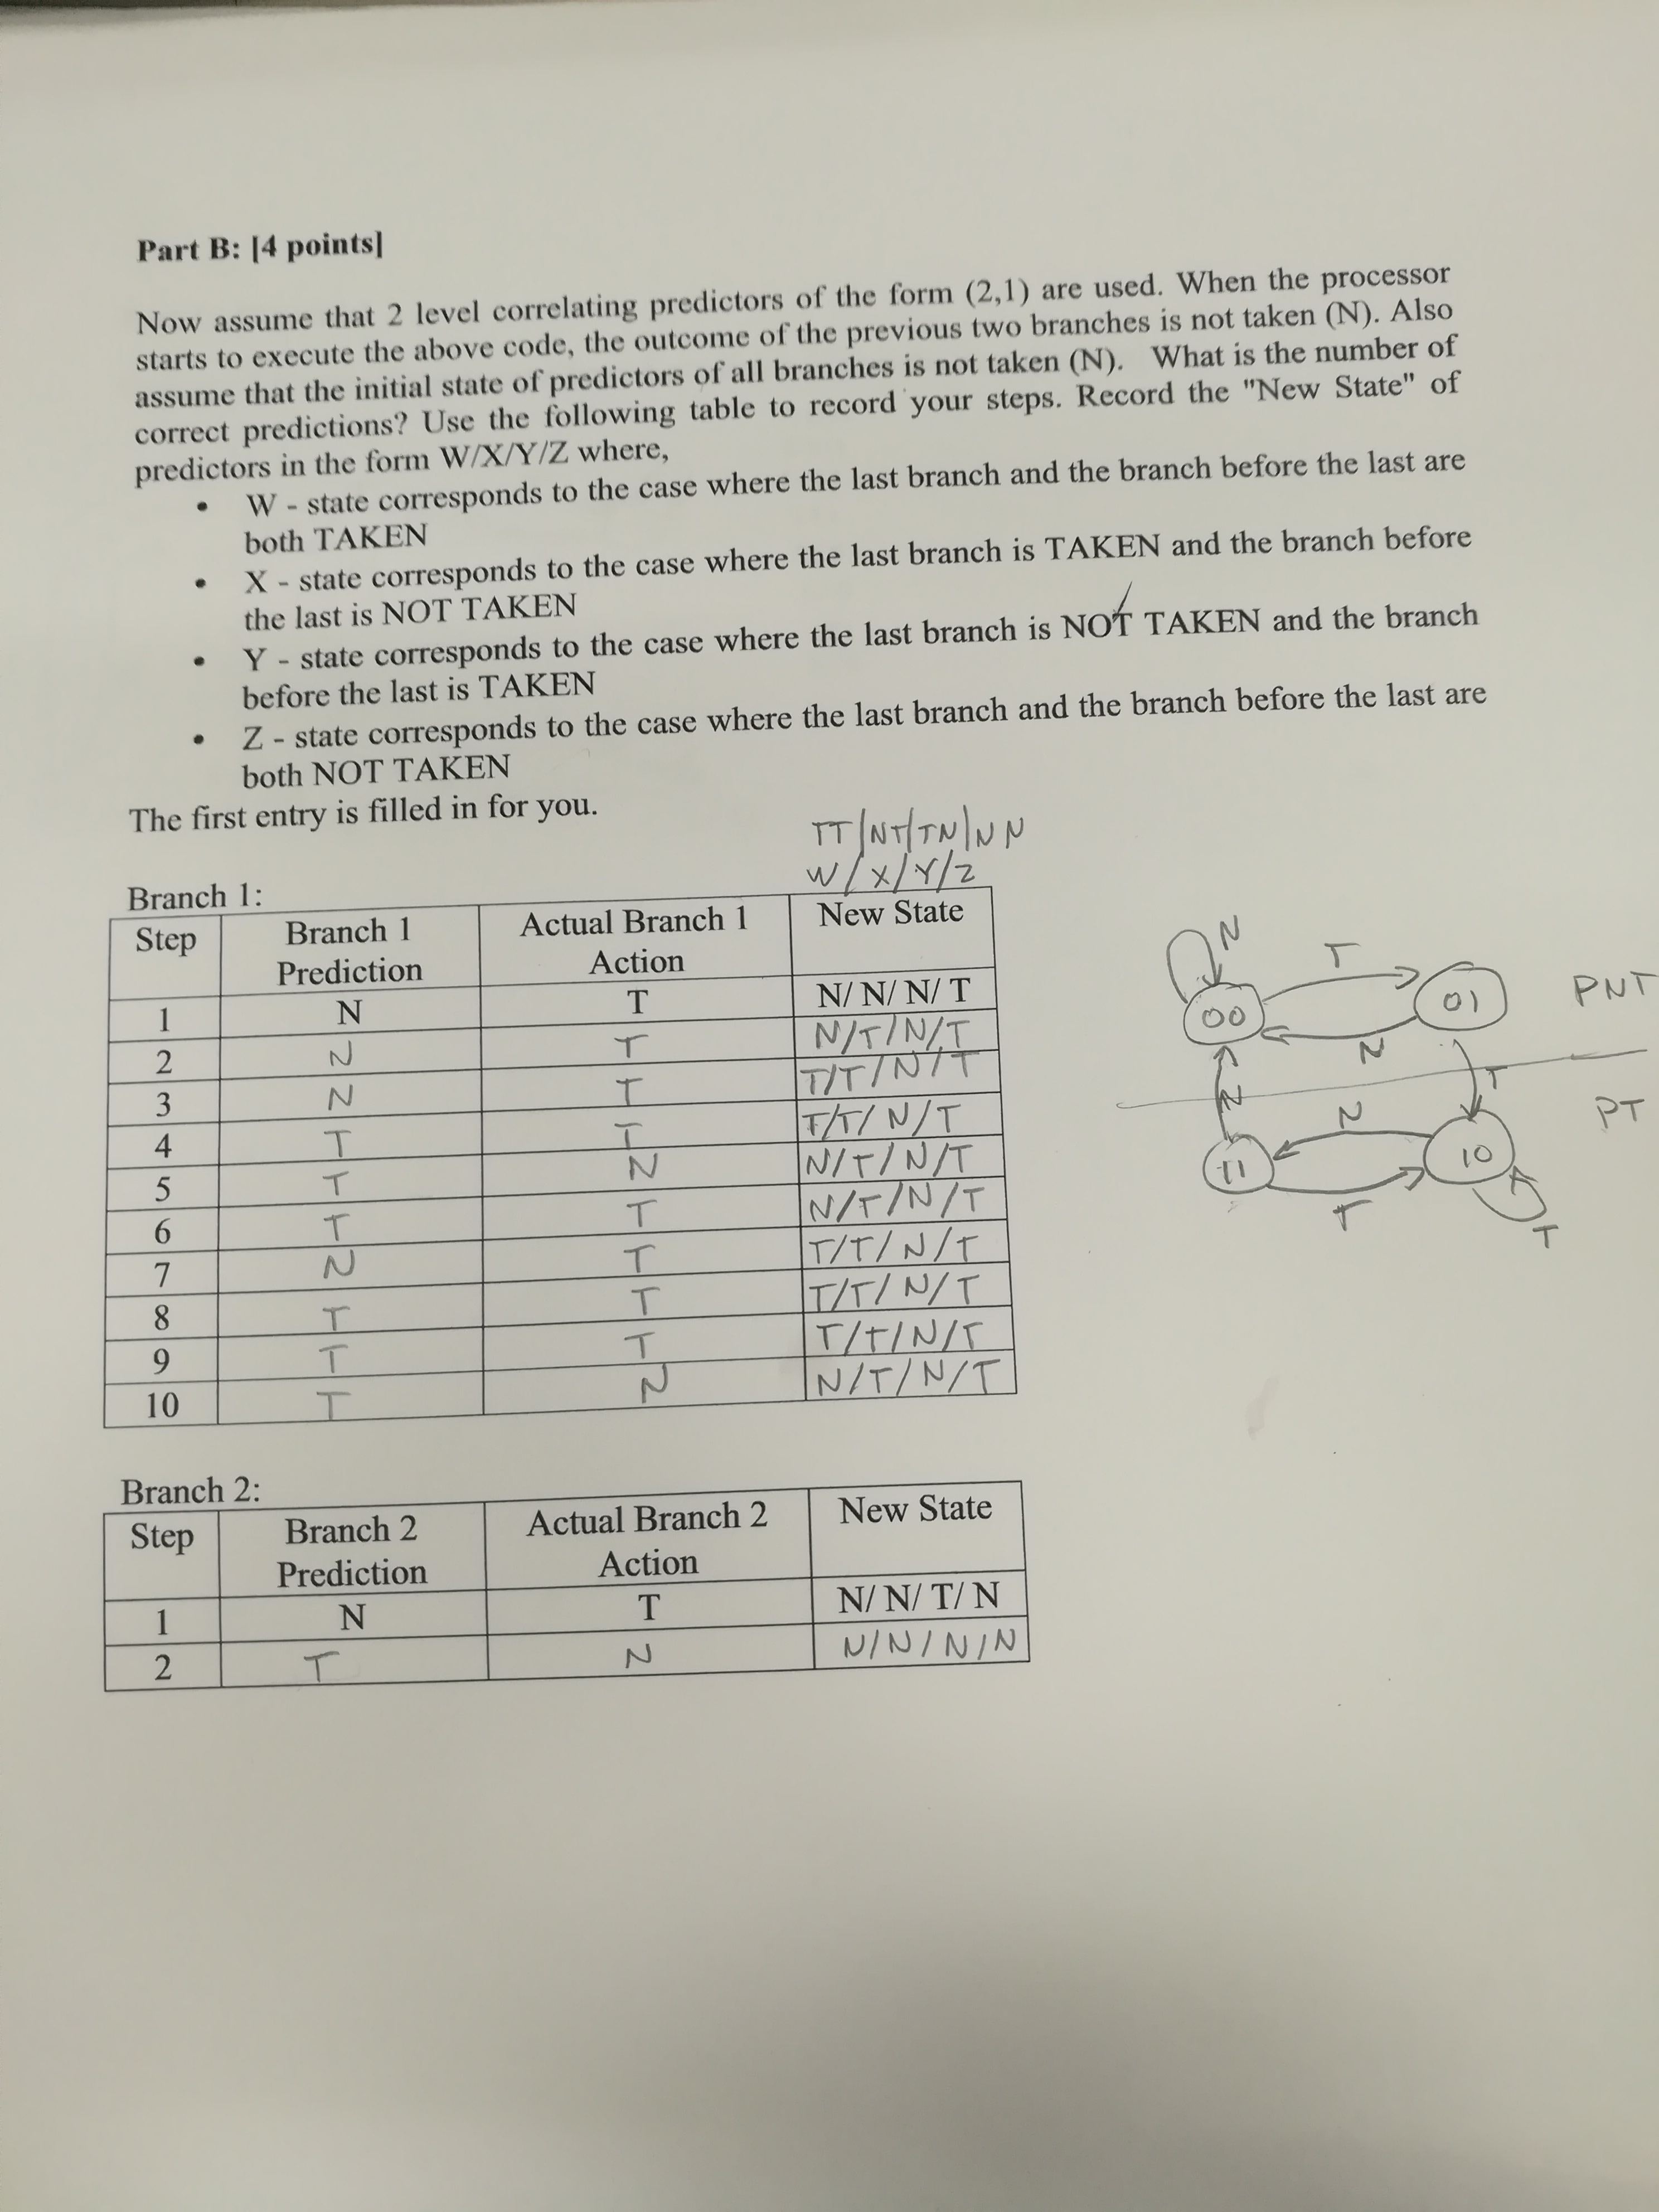 Part B: [4 points]
Now assume that 2 level correlating predictors of the form (2,1) are used. When the processor
starts to execute the above code, the outcome of the previous two branches is not taken (N). Also
assume that the initial state of predictors of all branches is not taken (N). What is the number of
correct predictions? Use the following table to record your steps. Record the "New State" of
predictors in the form W/X/Y/Z where,
• W - state corresponds to the case where the last branch and the branch before the last are
both TAKEN
• X - state corresponds to the case where the last branch is TAKEN and the branch before
the last is NOT TAKEN
• Y - state corresponds to the case where the last branch is NOT TAKEN and the branch
before the last is TAKEN
• Z - state corresponds to the case where the last branch and the branch before the last are
both NOT TAKEN
The first entry is filled in for you.
TT|NT|TN|NN
W/X/Y/Z
Branch 1:
Step Branch 1 Prediction Actual Branch 1 Action New State
1 N T N/ N/ N/ T
2 N T N/T/N/T
3 N T T/T/N/T
4 T T T/T/N/T
5 T N N/T/N/T
6 T T N/T/N/T
7 N T T/T/N/T
8 T T T/T/N/T
9 T T T/T/N/T
10 T N N/T/N/T
N
T
00
01
PNT
N
N
T
PT
N
11
10
T
T
Branch 2:
Step Branch 2 Prediction Actual Branch 2 Action New State
1 N T N/ N/ T/ N
2 T N N/N/N/N